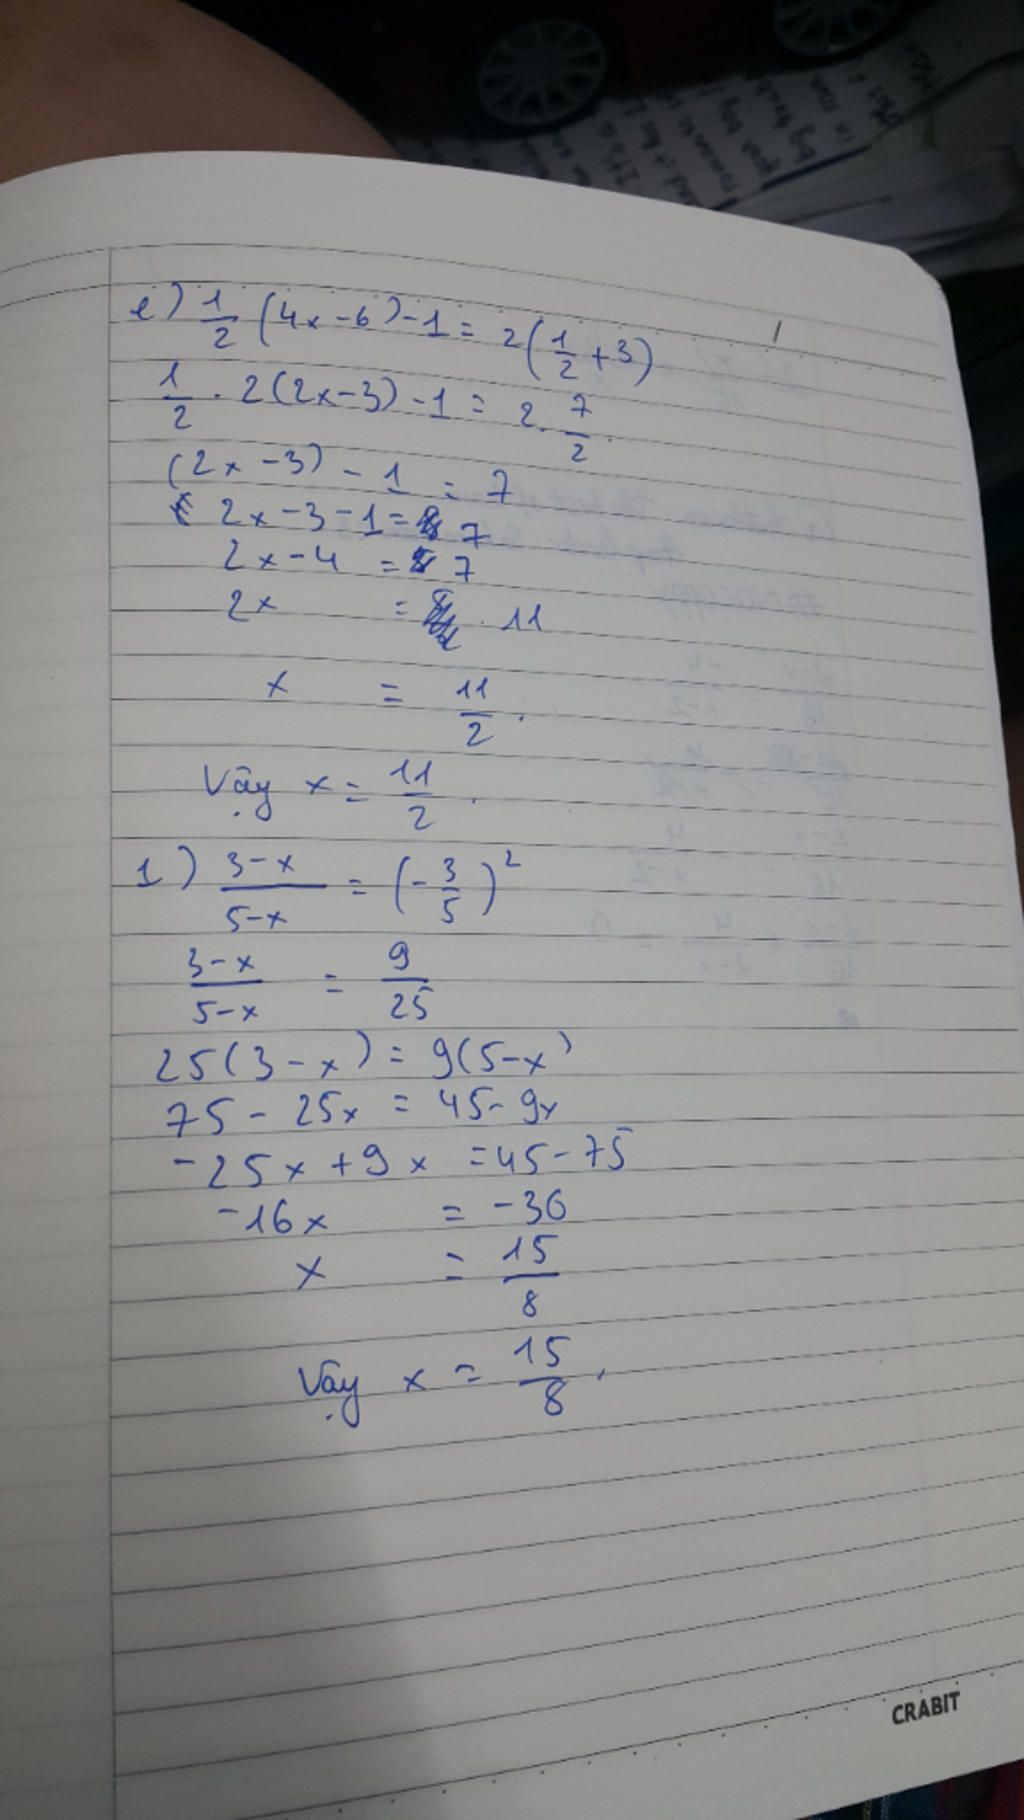 e) 1/2 (4x-6)-1 = 2(1/2 + 3)
1/2 . 2(2x-3) - 1 = 2. 7/2.
(2x-3) - 1 = 7
2x-3-1 = 7
2x-4 = 7
2x = 11
x = 11/2.
Vậy x = 11/2.
1) 3-x/5-x = (-3/5)²
3-x/5-x = 9/25
25(3-x) = 9(5-x)
75 - 25x = 45-9x
-25x + 9x = 45-75
-16x = -30
x = 15/8
Vậy x = 15/8.
CRABIT